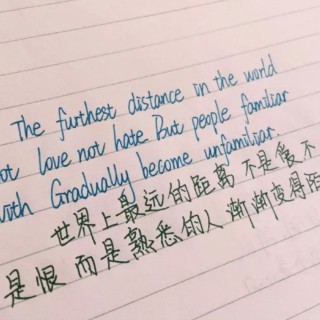 The furthest distance in the world
not love not hate But people familiar
with Gradually become unfamiliar.
世界上最远的距离 不是爱不
是恨 而是熟悉的人 渐渐变得陌